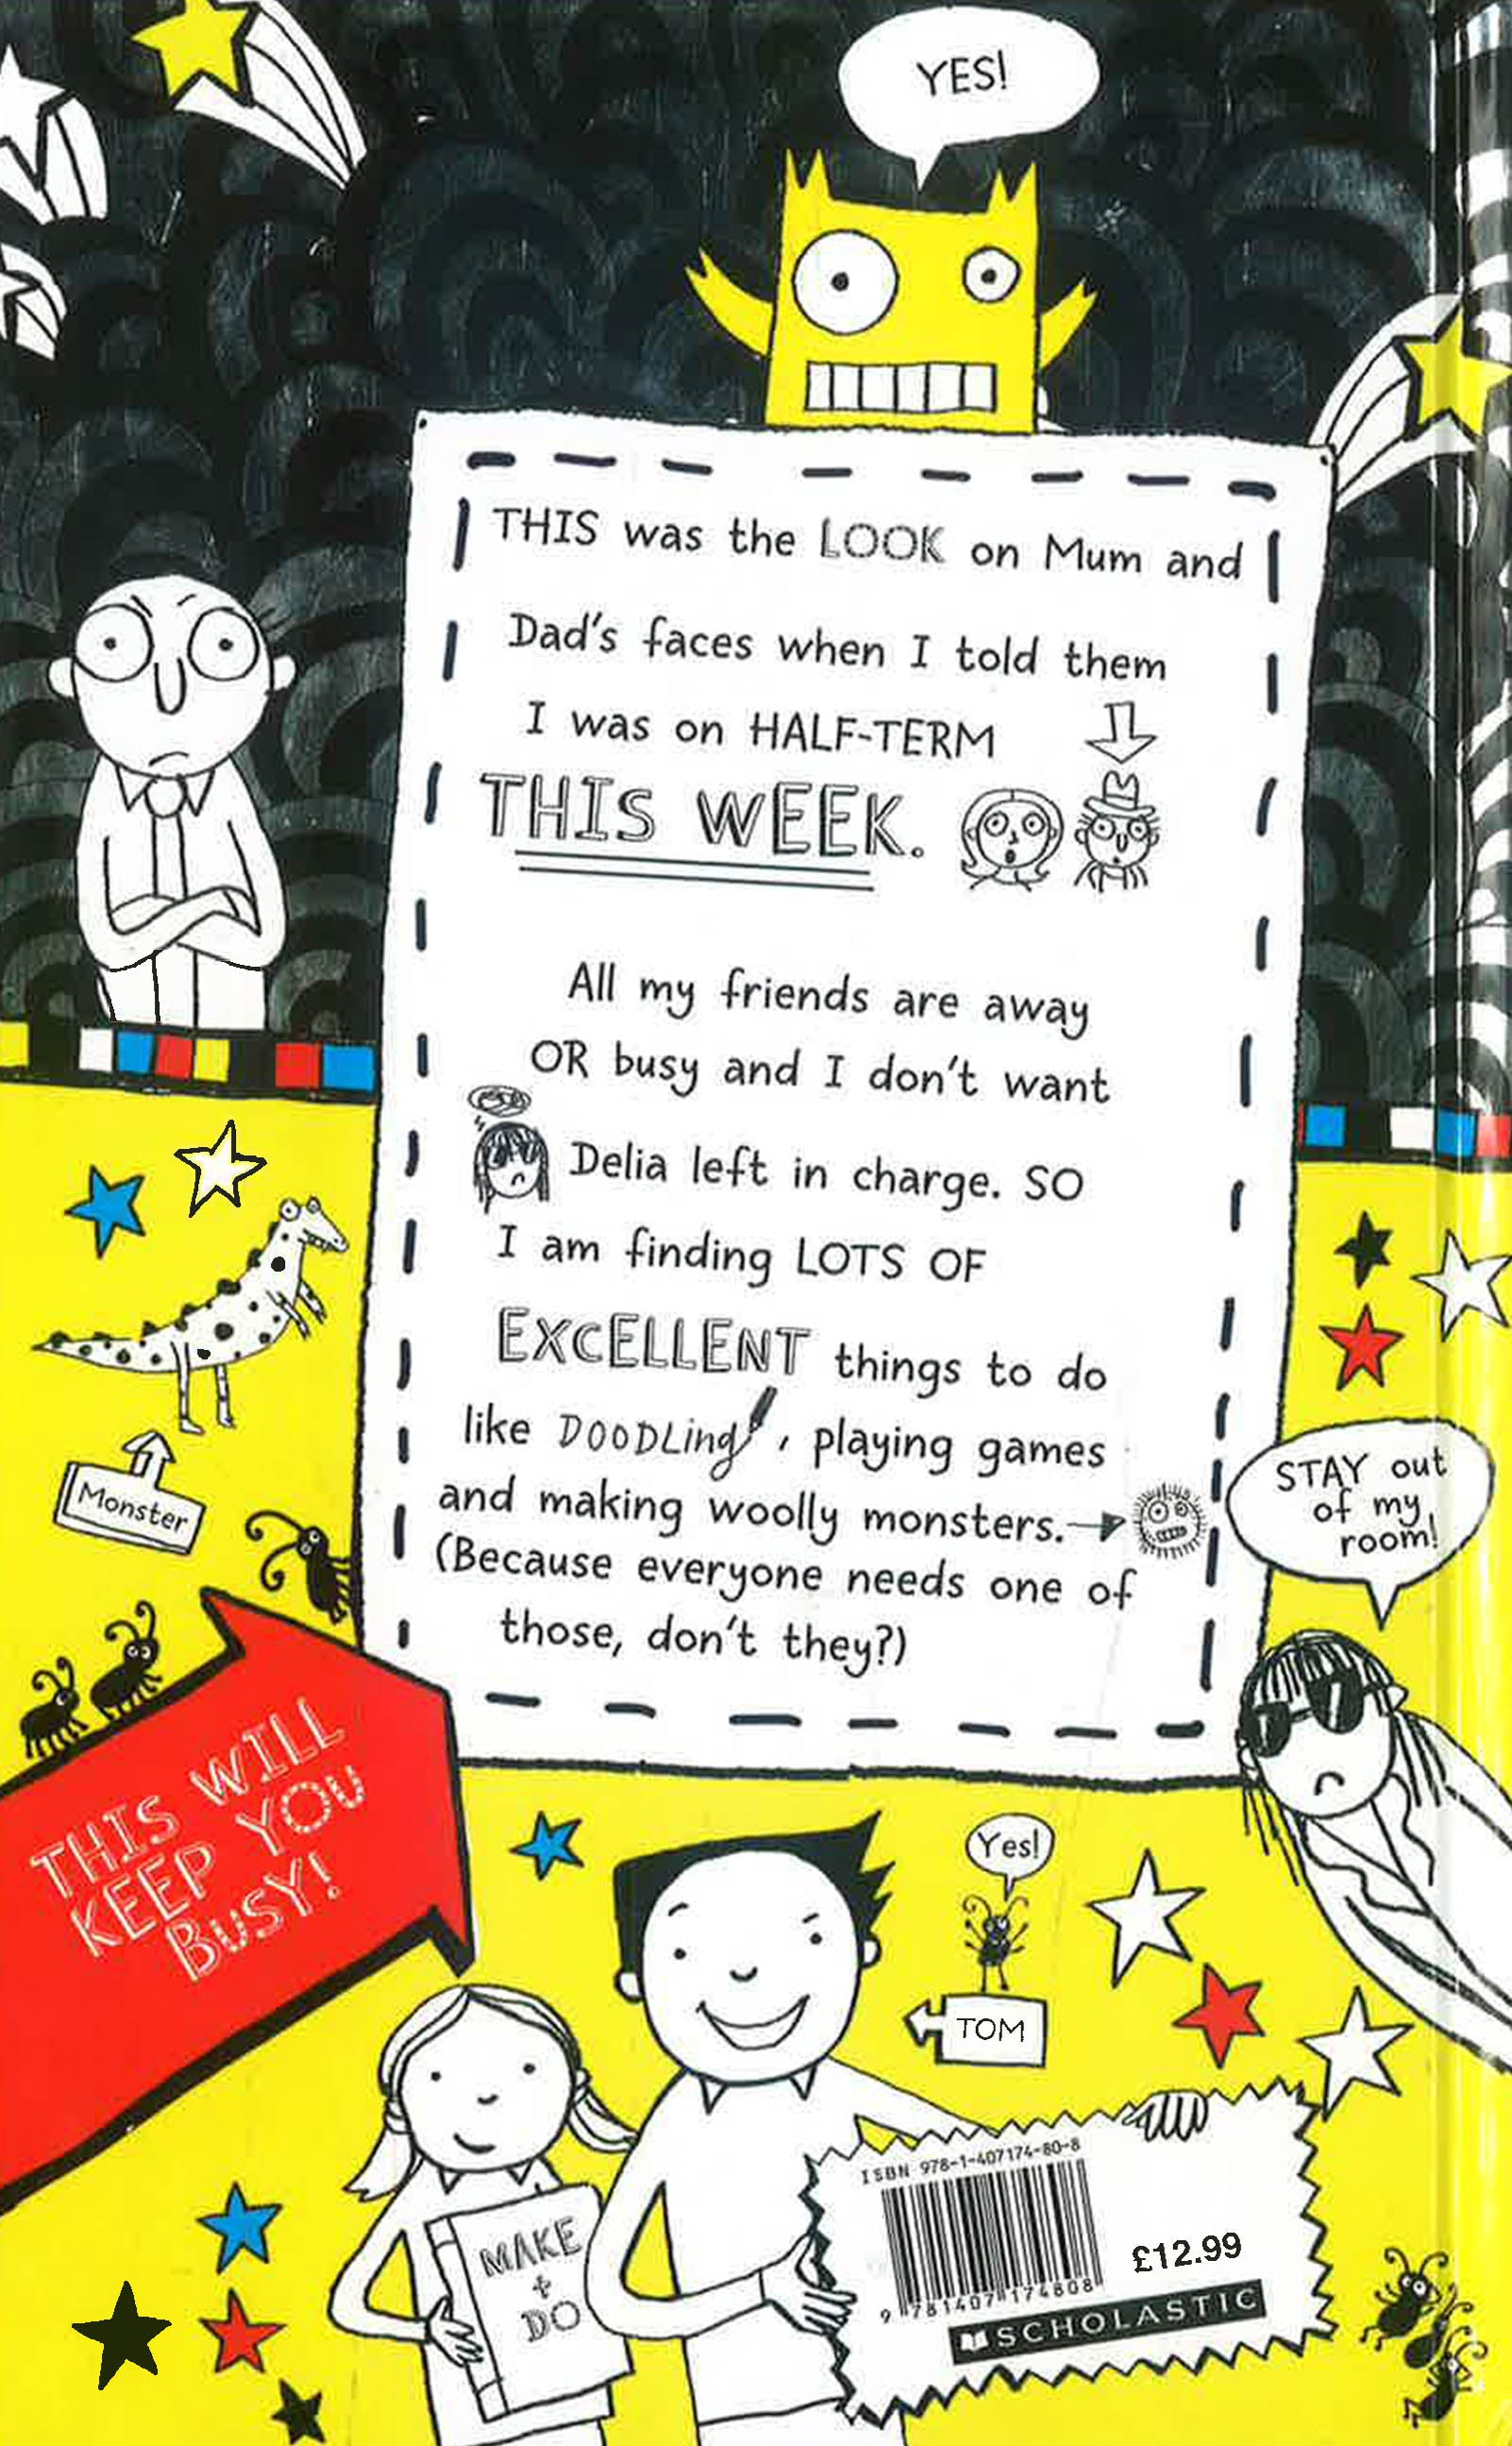 YES!
THIS was the LOOK on Mum and
Dad's faces when I told them
I was on HALF-TERM
THIS WEEK.
All my friends are away
OR busy and I don't want
Delia left in charge. SO
I am finding LOTS OF
EXCELLENT things to do
like DOODLing, playing games
and making woolly monsters.
(Because everyone needs one of
those, don't they?)
Monster
STAY out
of my
room!
THIS WILL
KEEP YOU
BUSY!
Yes!
TOM
MAKE
+
DO
ISBN 978-1-407174-80-8
£12.99
9 781407 174808
SCHOLASTIC